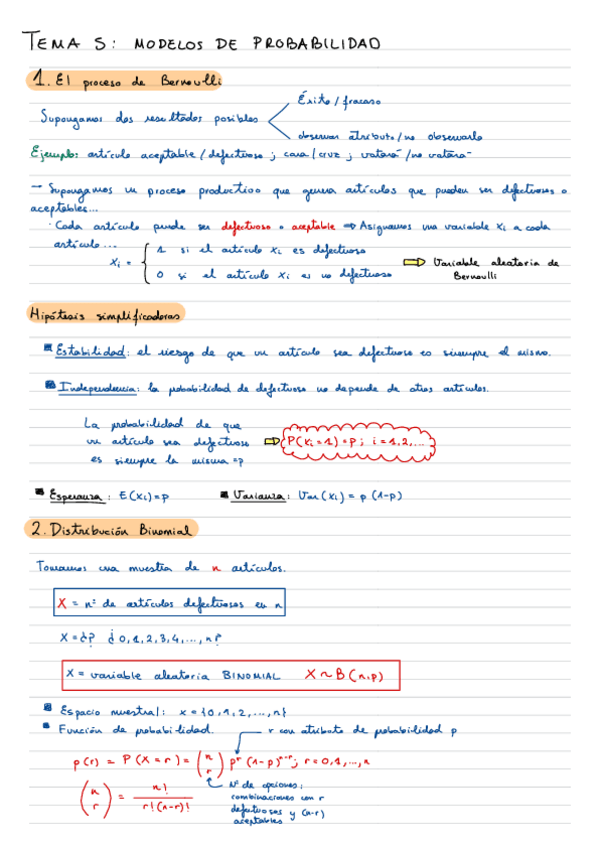 TEMA 5: MODELOS DE PROBABILIDAD
1. El proceso de Bernoulli
Éxito / fracaso
Supongamos dos resultados posibles
observar atributo / no observarlo
Ejemplo: artículo aceptable / defectuoso ; cara / cruz ; votará / no votará
→ Supongamos un proceso productivo que genera artículos que pueden ser defectuosos o
aceptables...
· Cada artículo puede ser defectuoso o aceptable ⇒ Asignamos una variable Xi a cada
artículo ...
1 si el artículo Xi es defectuoso
Xi = { ⇒ Variable aleatoria de
0 si el artículo Xi es no defectuoso Bernoulli
Hipótesis simplificadoras
Estabilidad: el riesgo de que un artículo sea defectuoso es siempre el mismo.
Independencia: la probabilidad de defectuoso no depende de otros artículos.
La probabilidad de que
un artículo sea defectuoso ⇒ P(Xi = 1) = p ; i = 1, 2, ...
es siempre la misma = p
Esperanza: E(Xi) = p Varianza: Var (Xi) = p (1-p)
2. Distribución Binomial
Tomamos una muestra de n artículos.
X = nº de artículos defectuosos en n
X = ¿? ¿ 0, 1, 2, 3, 4, ..., n ?
X = variable aleatoria BINOMIAL X ~ B (n, p)
Espacio muestral: x = {0, 1, 2, ..., n}
Función de probabilidad. r con atributo de probabilidad p
p(r) = P (X = r) = (n r) p^r (1-p)^n-r ; r = 0, 1, ..., n
(n r) = n! / r! (n-r)!
Nº de opciones:
combinaciones con r
defectuosos y (n-r)
aceptables